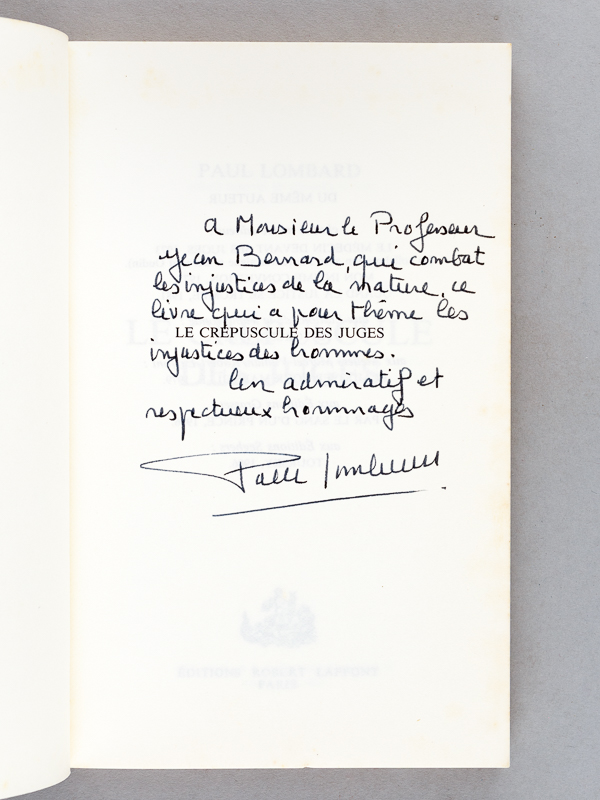 a Monsieur le Professeur
Jean Bernard, qui combat
les injustices de la nature, ce
livre qui a pour thême les
LE CRÉPUSCULE DES JUGES
injustices des hommes.
En admiratif et
respectueux hommages
Paul Lombard